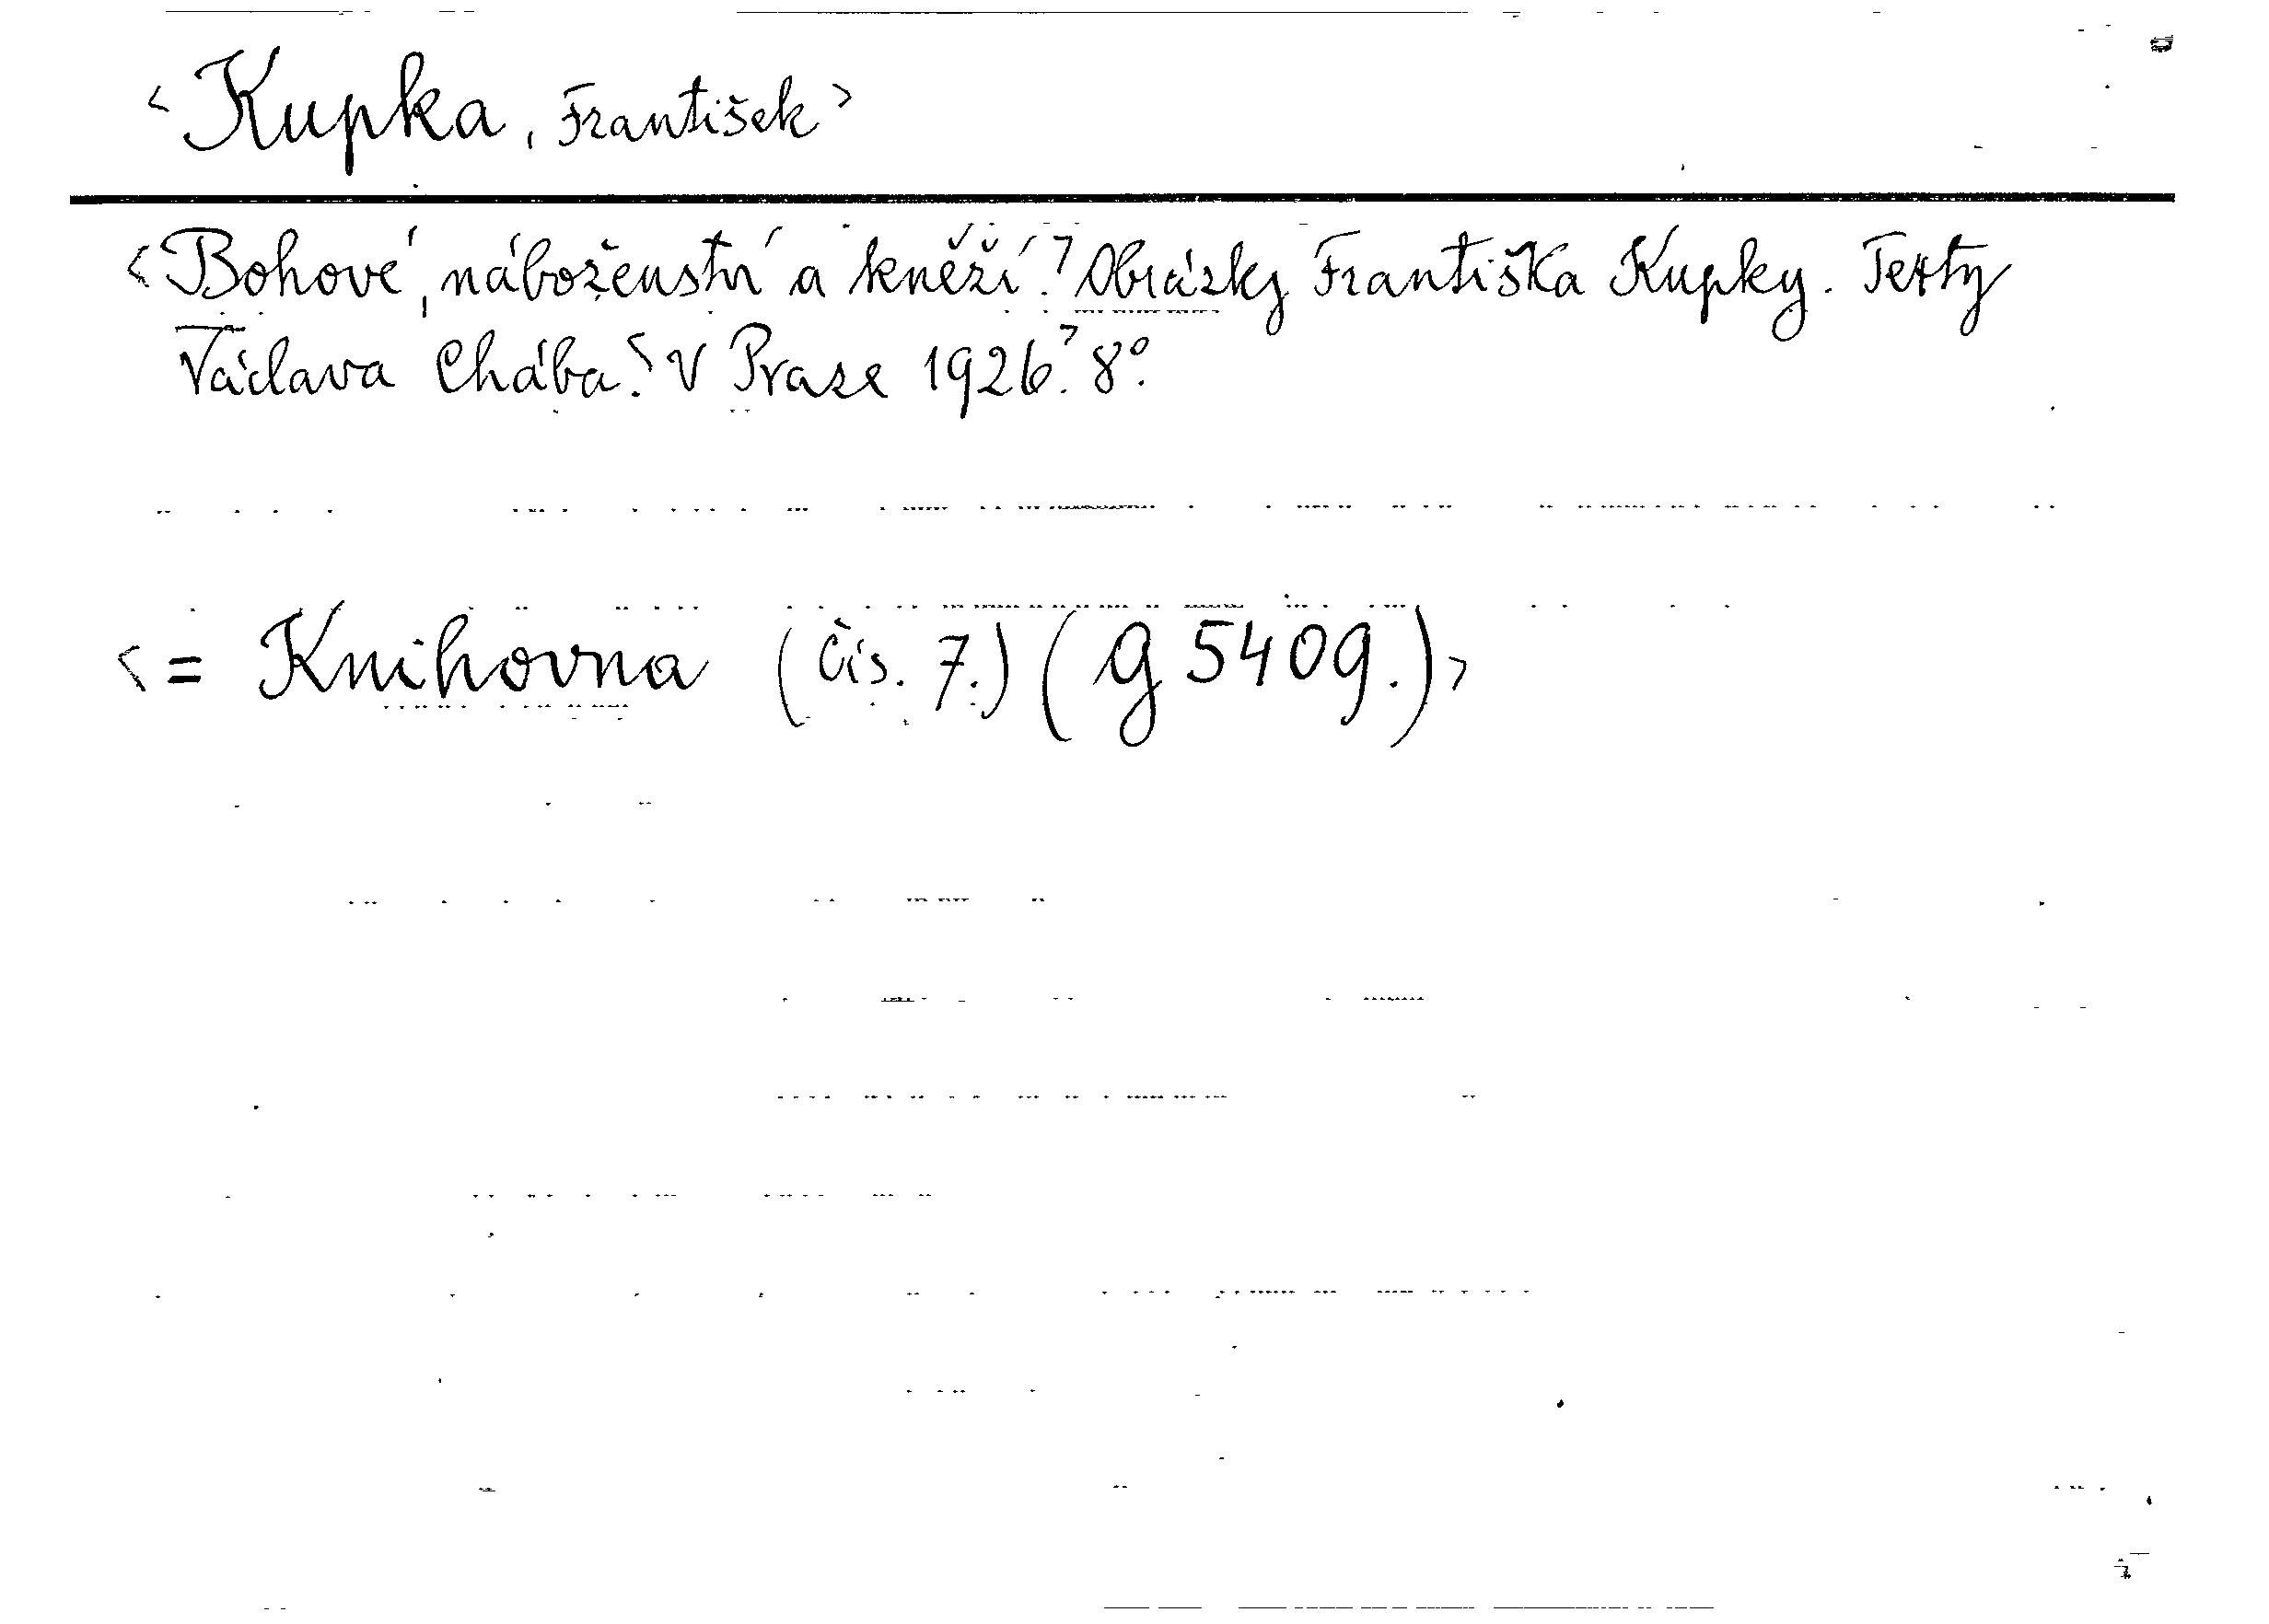 <Kupka, František>
<Bohové, náboženství a kněží.> Obrázky Františka Kupky. Texty
Václava Chába. <V Praze 1926.> 8°.
<= Knihovna (čís. 7.) (g 5409.)>